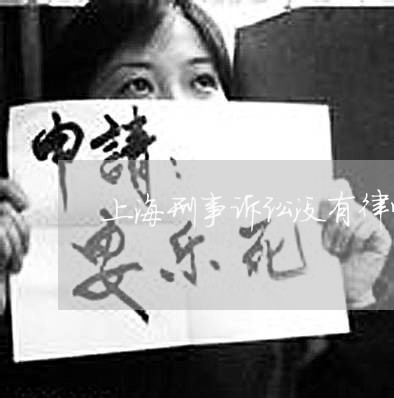 申請：
上海刑事诉讼没有律
安乐死